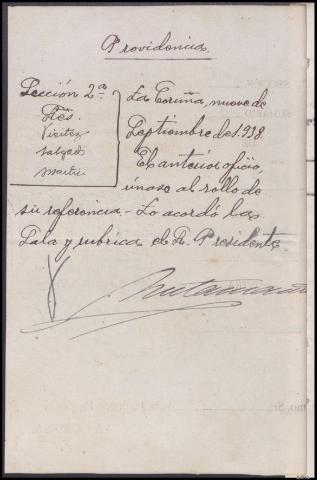 Providencia.
Sección 2ª
Sres.
Vieitez
Salgado
Martín
La Coruña, nueve de
Septiembre de 1.938.
El anterior oficio,
únase al rollo de
su referencia.- Lo acordó la
Sala y rubrica el Sr. Presidente